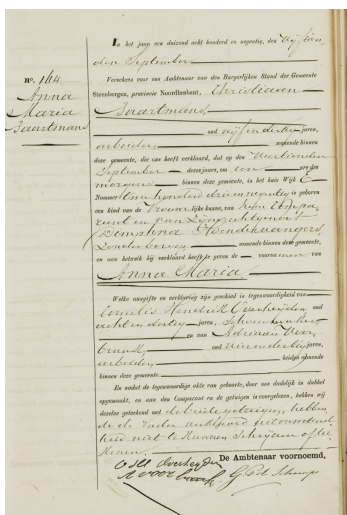 In het jaar een duizend acht honderd en negentig, den vijftien
den September
No. 164
Anna
Maria
Baartmans
Verscheen voor ons Ambtenaar van den Burgerlijken Stand der Gemeente
Steenbergen, provincie Noordbrabant, Christiaan
Baartmans,
oud vijfendertig jaren,
arbeider, wonende binnen
deze gemeente, die ons heeft verklaard, dat op den veertienden
September dezes jaars, ten een ure des
morgens binnen deze gemeente, in het huis Wijk E
Nommer honderd drieennegentig is geboren
een kind van de vrouwelijke kunne, van hem Compa-
rant en van zijne echtgenoot
Dimphna
zonder beroep, wonende binnen deze gemeente,
en aan hetwelk hij verklaard heeft te geven de voornamen van
Anna Maria.
Welke aangifte en verklaring zijn geschied in tegenwoordigheid van
Cornelis Hendrik Overheijden oud
achtendertig jaren, Schoenmaker
en van Adriaan Voor-
braak, oud vierendertig jaren,
arbeider, beiden wonende
binnen deze gemeente
En nadat de tegenwoordige akte van geboorte, door ons dadelijk in dubbel
opgemaakt, en aan den Comparant en de getuigen is voorgelezen, hebben wij
dezelve geteekend met de beide getuigen, hebben-
de de vader verklaard uit onbedreven-
heid niet te kunnen schrijven of tee-
kenen.
De Ambtenaar voornoemd,
CH Overheijden
A voorbraak